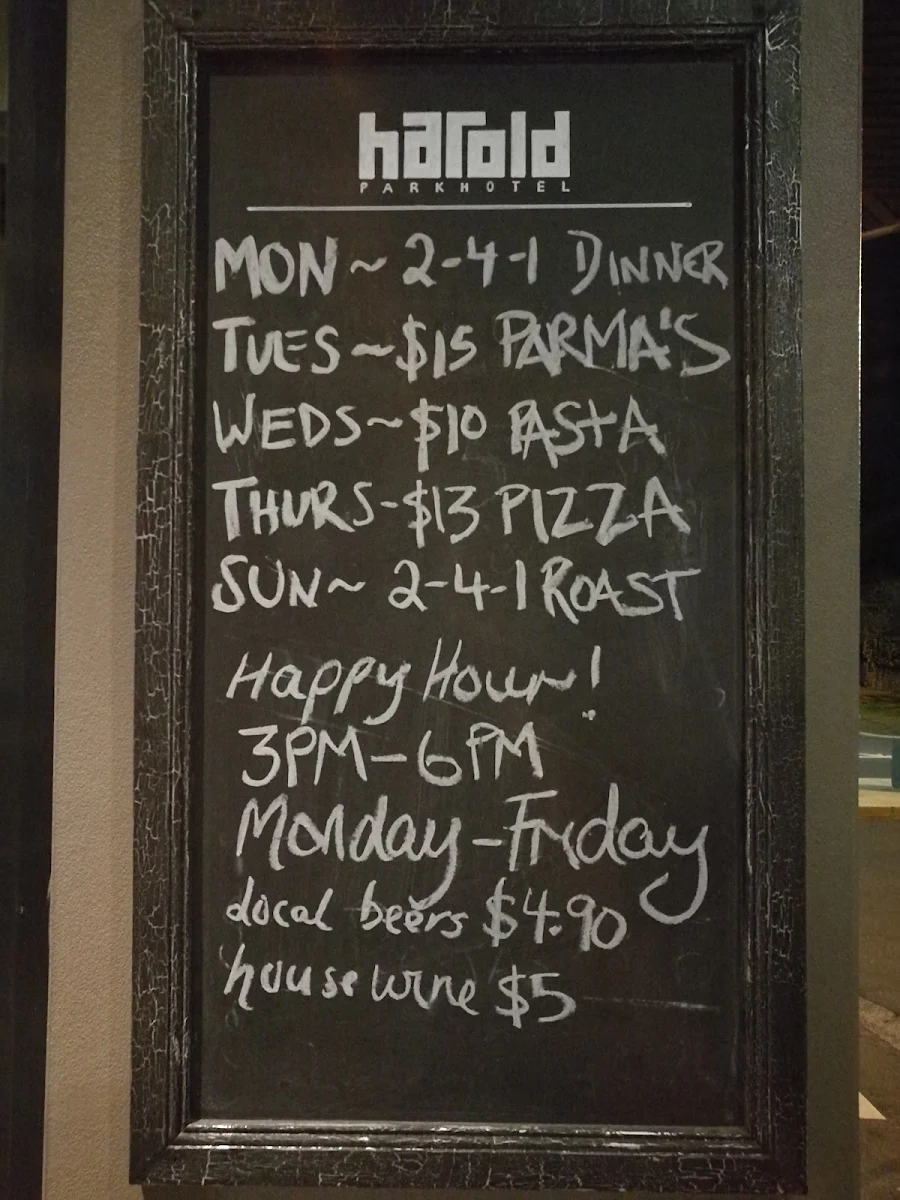 harold
PARKHOTEL
MON ~ 2-4-1 DINNER
TUES ~ $15 PARMA'S
WEDS ~ $10 PASTA
THURS - $13 PIZZA
SUN ~ 2-4-1 ROAST
Happy Hour!
3PM - 6PM
Monday - Friday
local beers $4.90
house wine $5